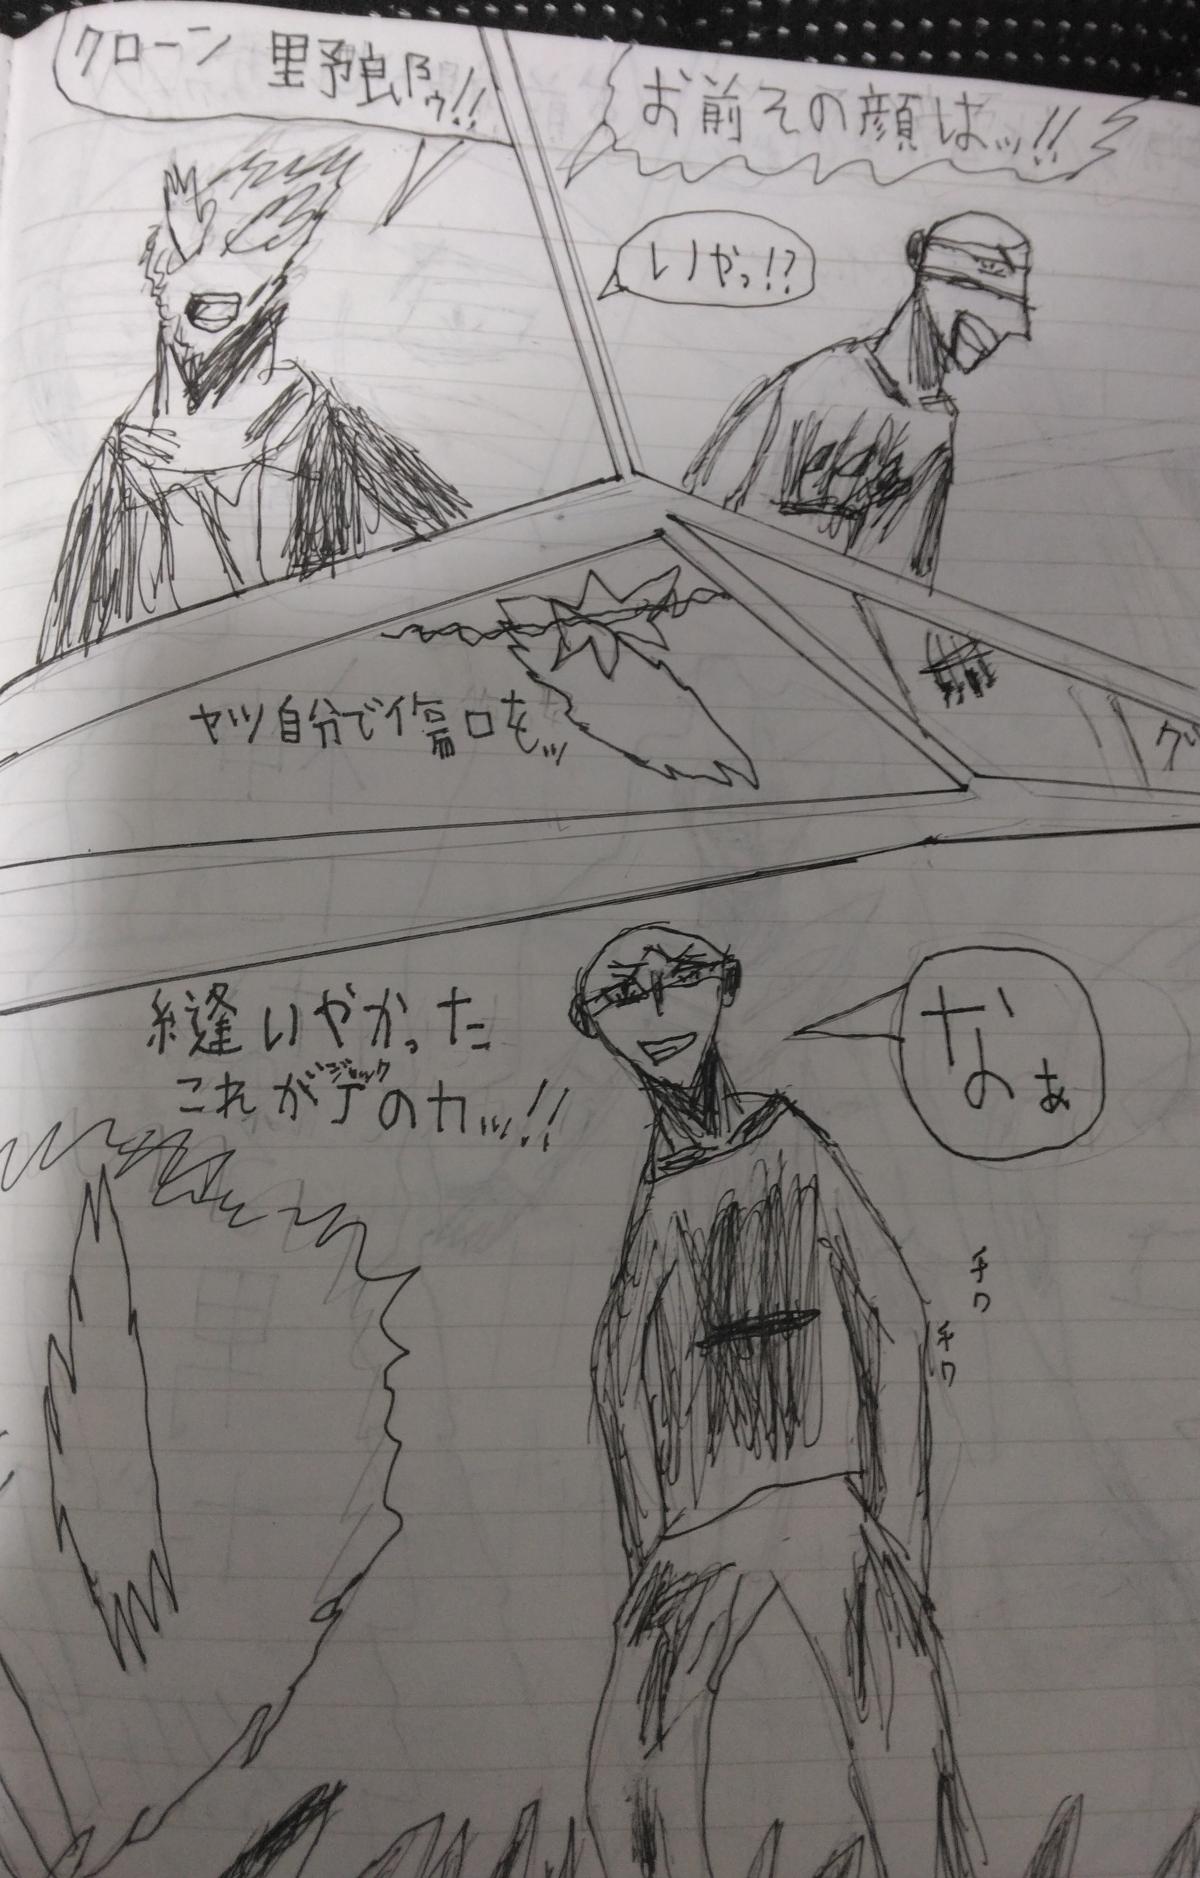 お前その顔はッ!!
いやっ!?
クローン野郎ゥ!!
グ
ヤツ自分で傷口をッ
なぁ
縫いやがった
これがデのカッ!!
チク
チク